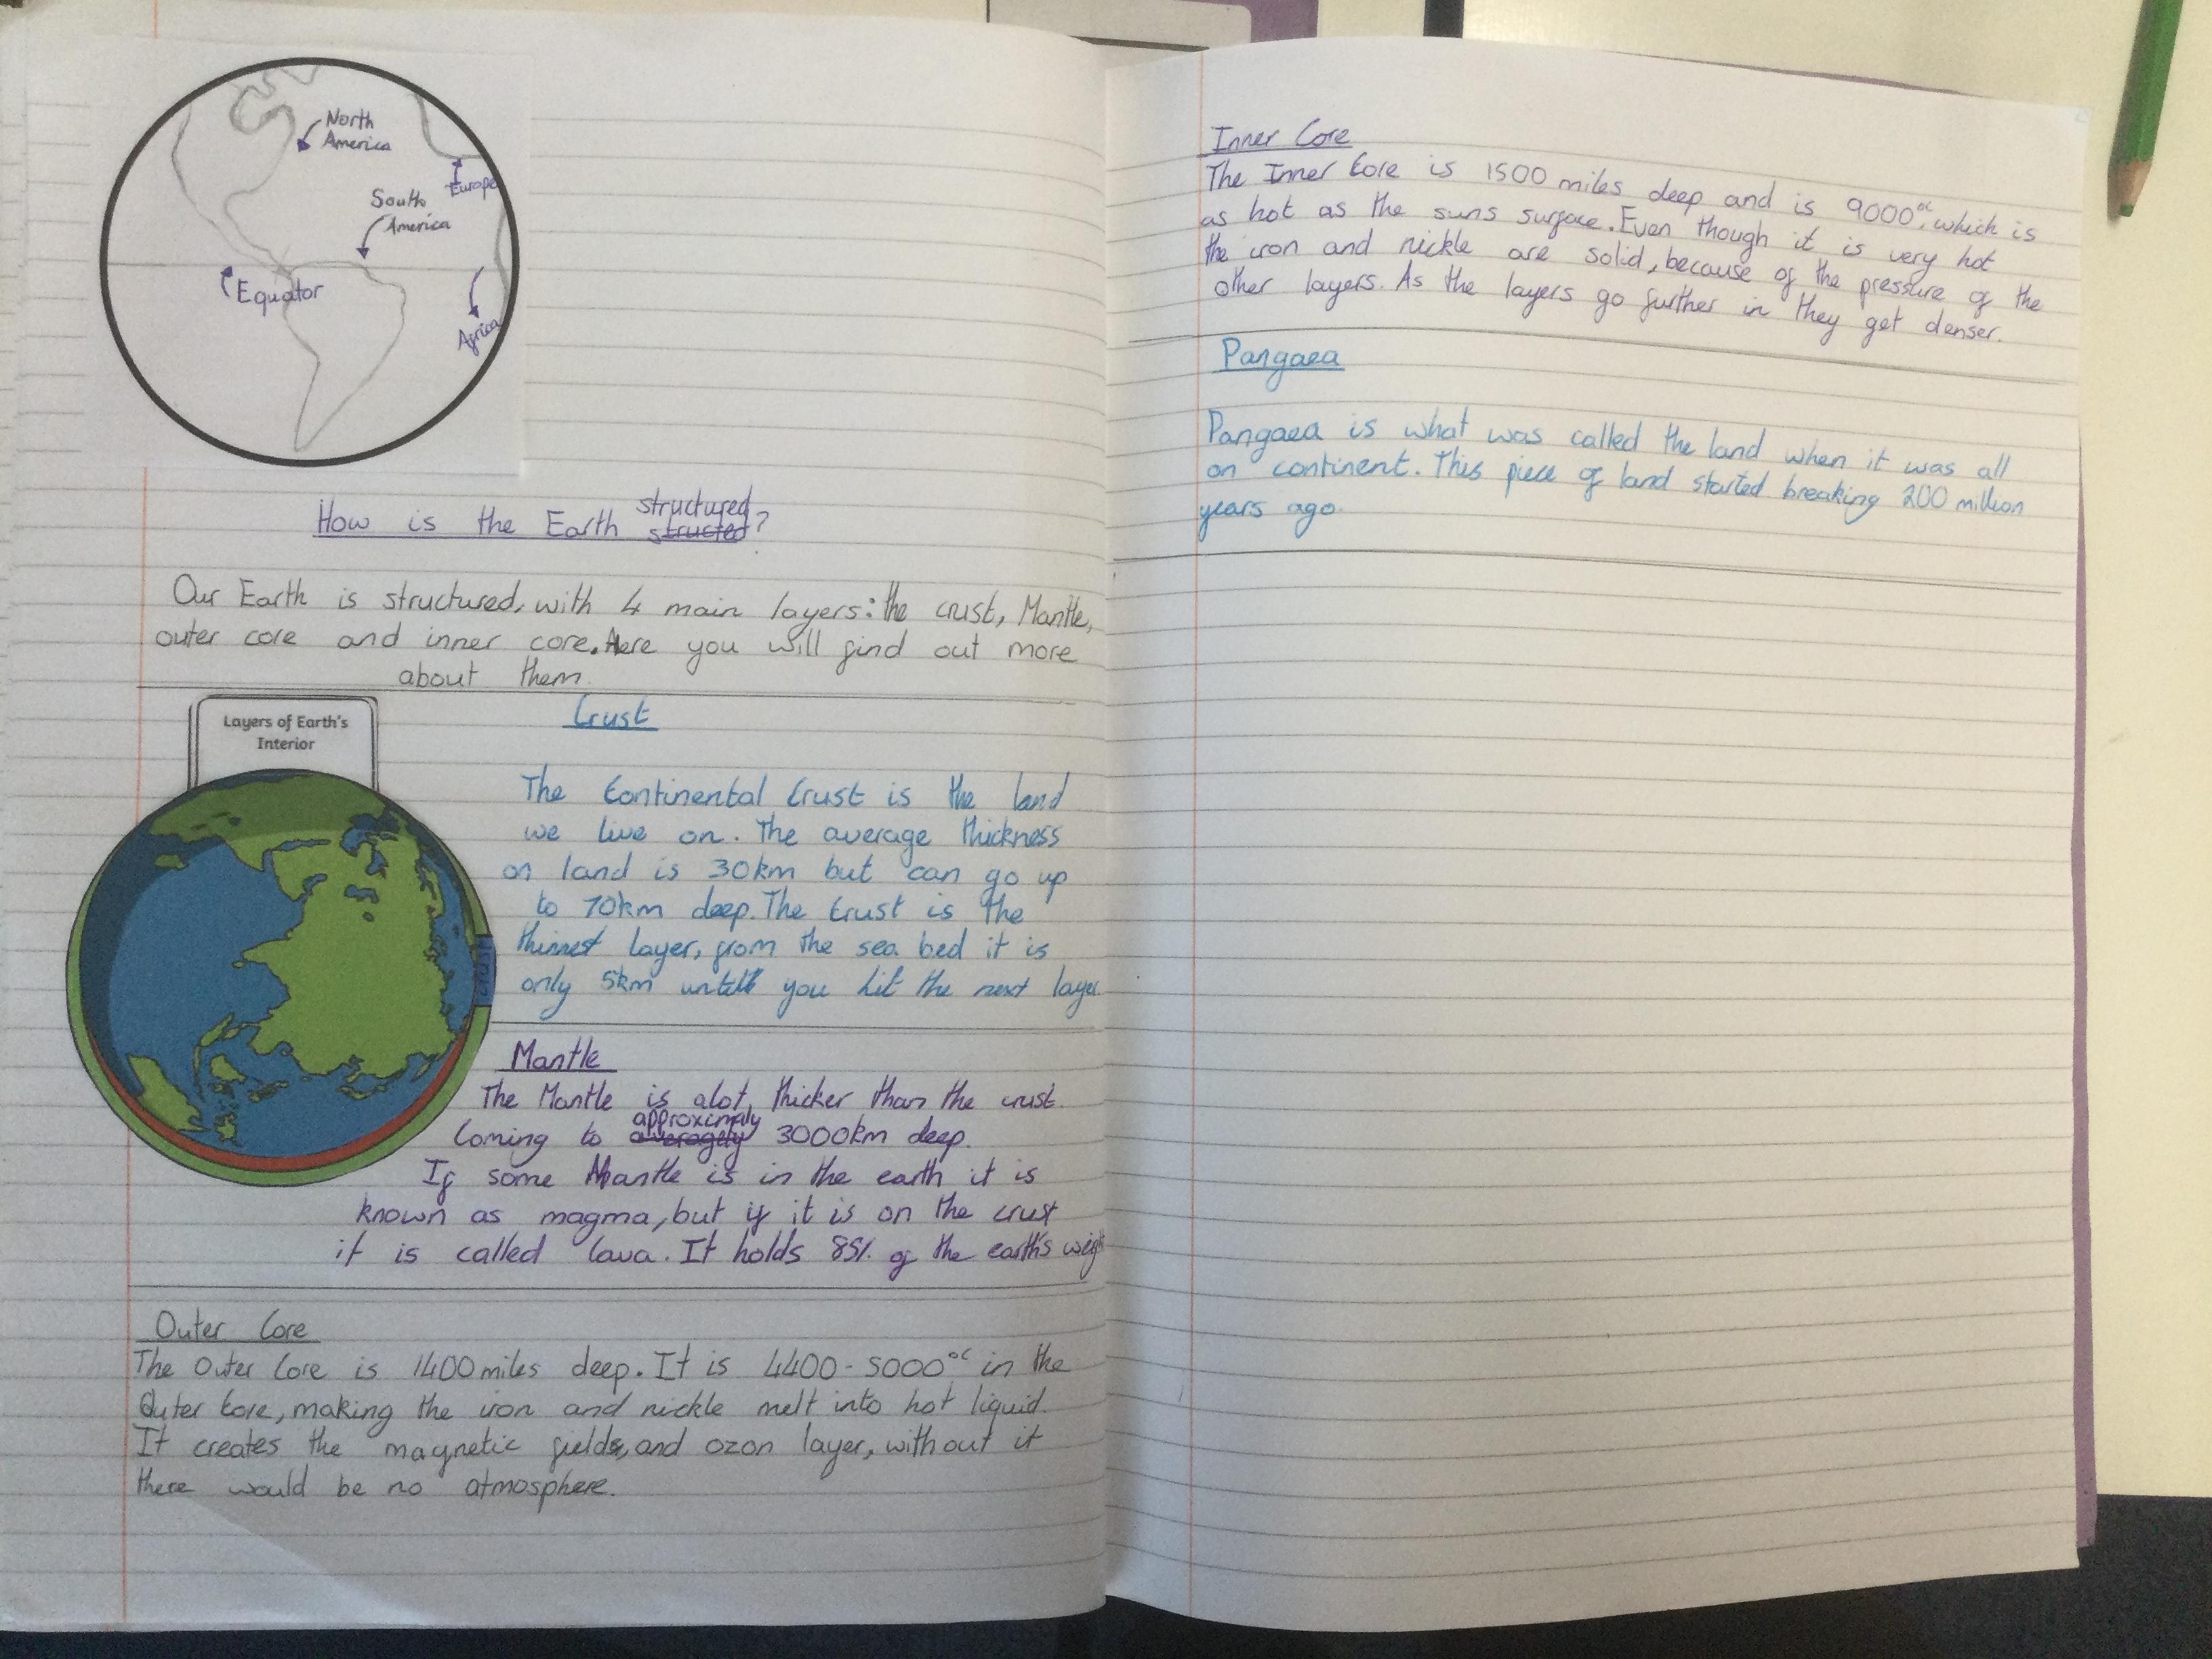 North
America
Europe
South
America
Equator
Africa
How is the Earth structured structed?
Our Earth is structured, with 4 main layers: the crust, Mantle,
outer core and inner core. Here you will find out more
about them.
Layers of Earth's
Interior
Crust
The Continental Crust is the land
we live on. The average thickness
on land is 30km but can go up
to 70km deep. The Crust is the
thinnest layer, from the sea bed it is
only 5km untill you hit the next layer
crust
Mantle
The Mantle is alot thicker than the crust.
approximaly
Coming to averagely 3000km deep.
If some Mantle is in the earth it is
known as magma, but if it is on the crust
it is called lava. It holds 85% of the earth's weigh
Outer Core
The Outer Core is 1400 miles deep. It is 4400-5000°C in the
Outer Core, making the iron and nickle melt into hot liquid.
It creates the magnetic fields, and ozon layer, without it
there would be no atmosphere.
Inner Core
The Inner Core is 1500 miles deep and is 9000°C, which is
as hot as the suns surface. Even though it is very hot
the iron and nickle are solid, because of the pressure of the
other layers. As the layers go further in they get denser.
Pangaea
Pangaea is what was called the land when it was all
on continent. This piece of land started breaking 200 million
years ago.